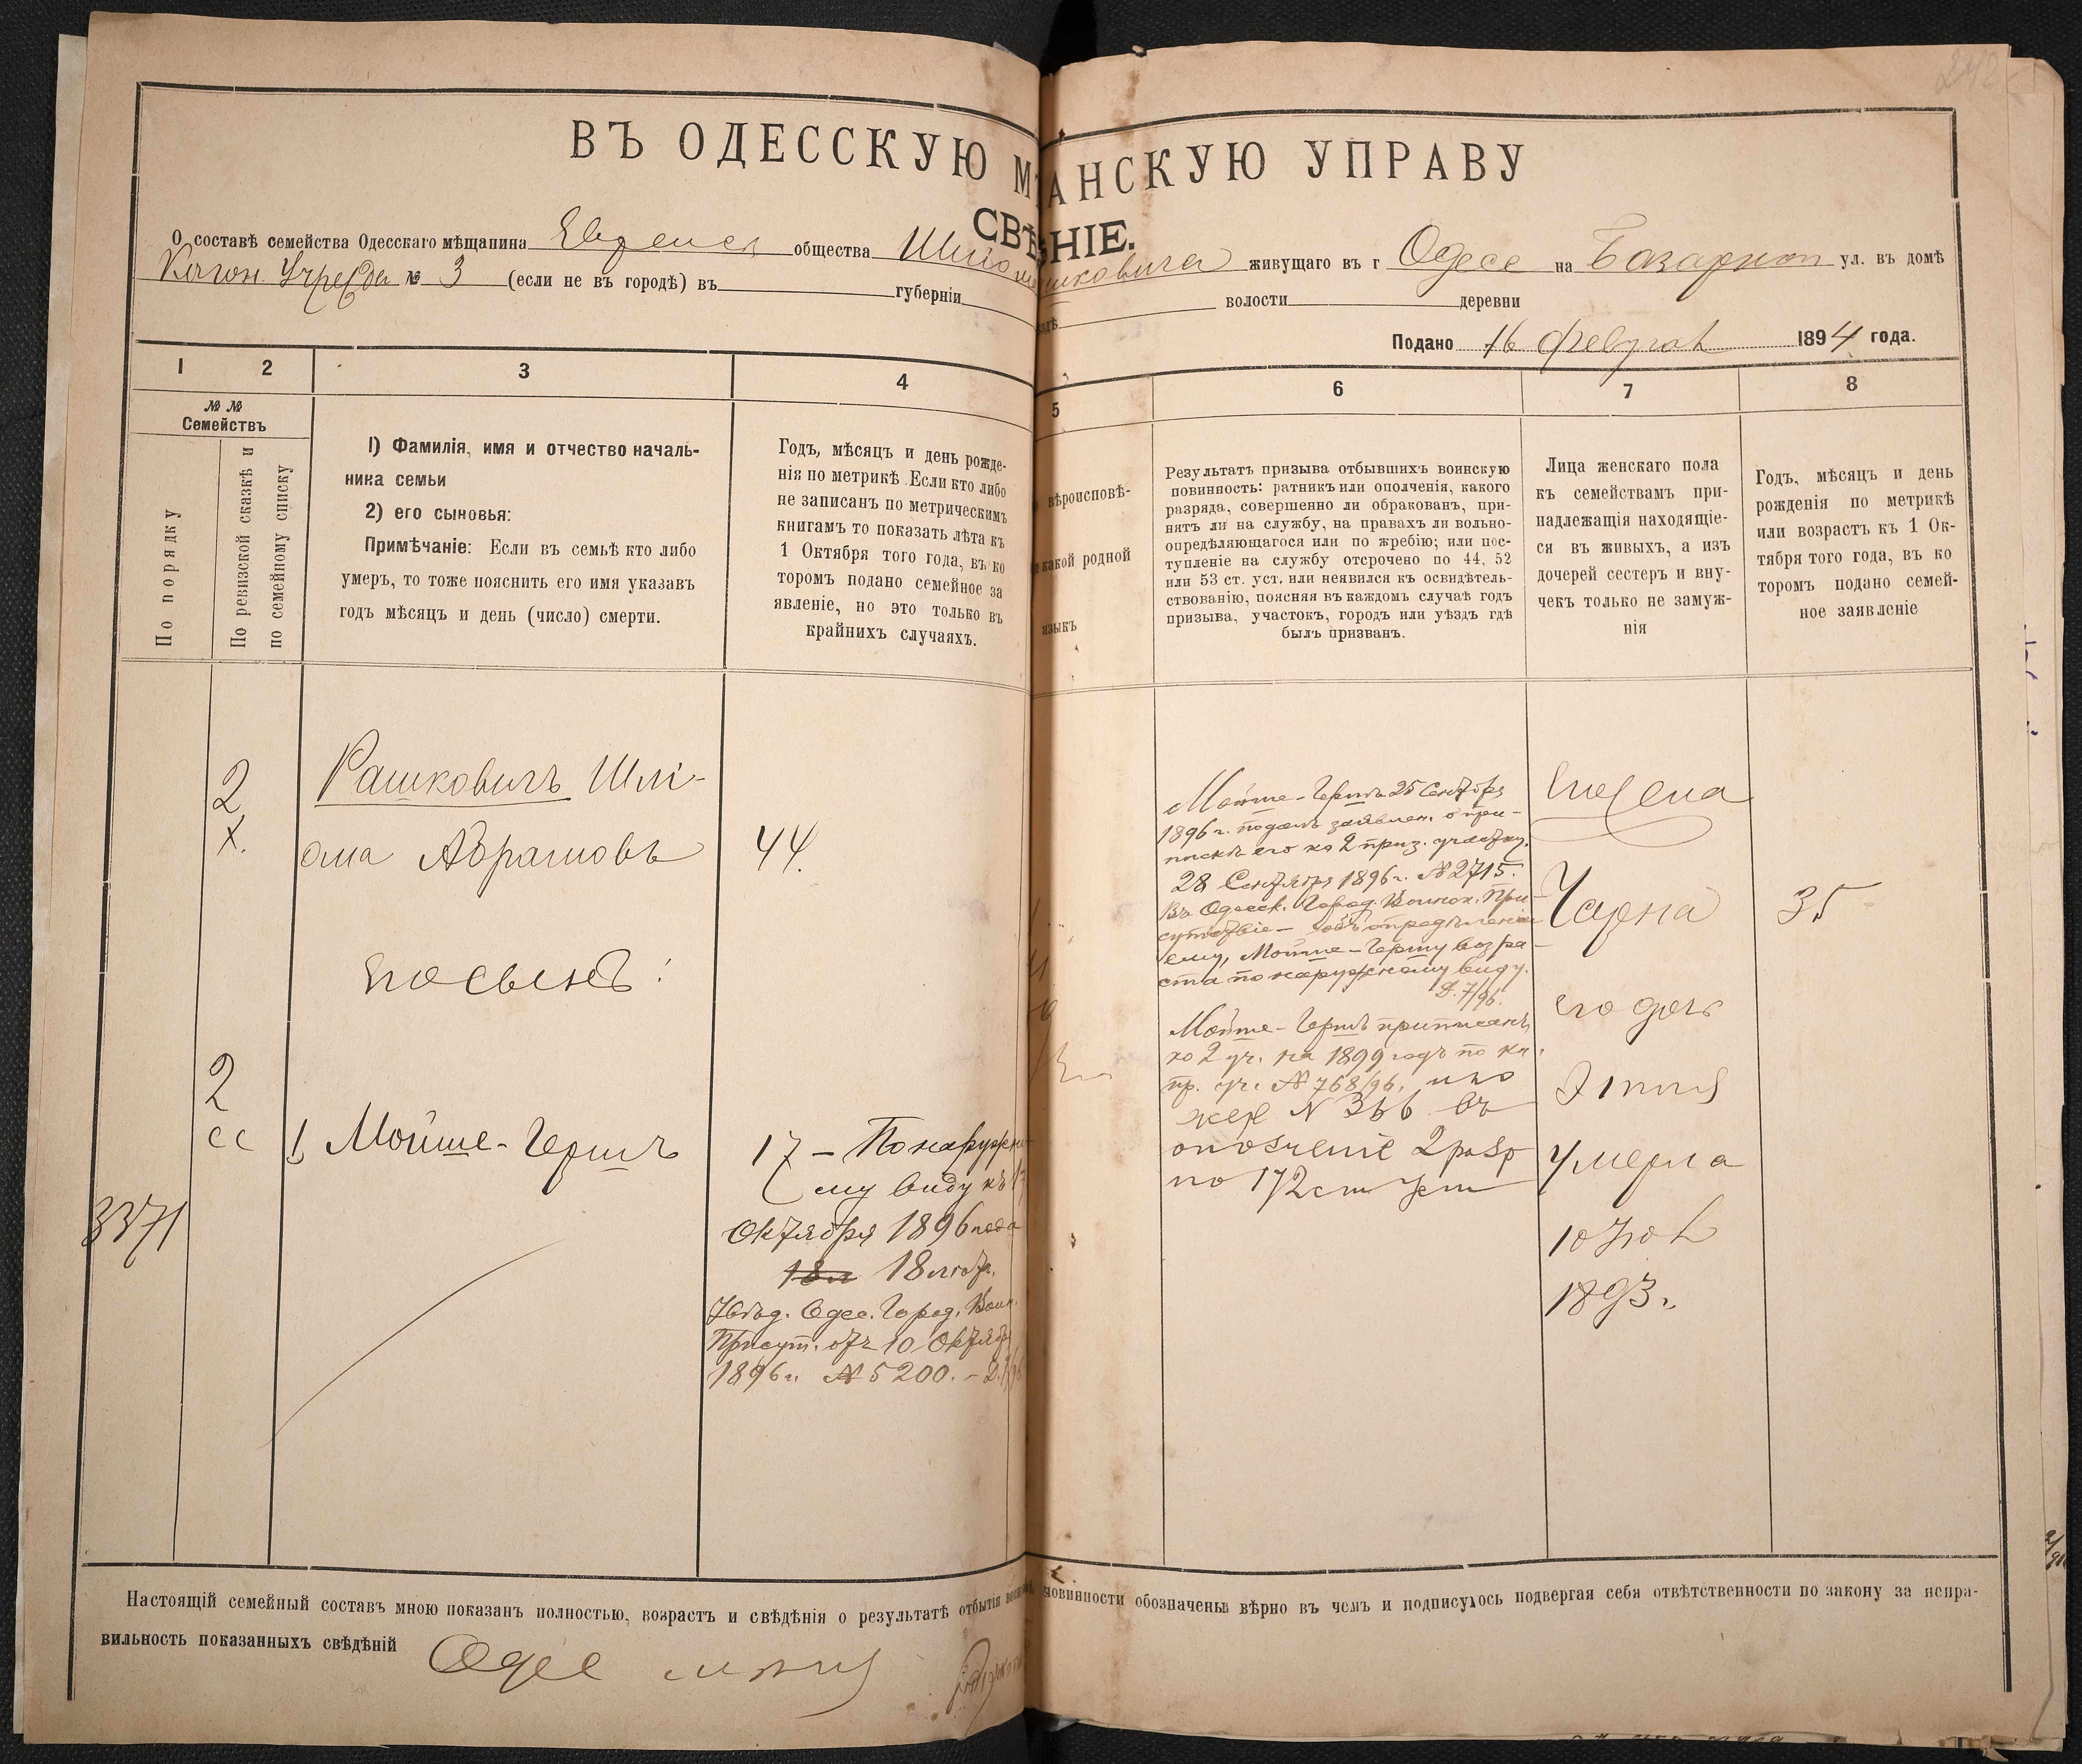 242
ВЪ ОДЕССКУЮ М АНСКУЮ УПРАВУ
СВѢ НІЕ.
О составѣ семейства Одесскаго мѣщанина общества живущаго въ г Одесе на Базарной ул. въ домѣ
№ 3 (если не въ городѣ) въ губерніи волости деревни
Подано 16 февраля 1894 года.
1 2 3 4 5 6 7 8
№ №
Семействъ
По порядку
По ревизской сказкѣ и
по семейному списку
1) Фамилія, имя и отчество началь-
ника семьи
2) его сыновья:
Примѣчаніе: Если въ семьѣ кто либо
умеръ, то тоже пояснить его имя указавъ
годъ мѣсяцъ и день (число) смерти.
Годъ, мѣсяцъ и день рожде-
нія по метрикѣ Если кто либо
не записанъ по метрическимъ
книгамъ то показать лѣта къ
1 Октября того года, въ ко
торомъ подано семейное за
явленіе, но это только въ
крайнихъ случаяхъ.
вѣроисповѣ-
какой родной
языкъ
Результатъ призыва отбывшихъ воинскую
повинность: ратникъ или ополченія, какого
разряда, совершенно ли обракованъ, при-
нятъ ли на службу, на правахъ ли вольно-
опредѣляющагося или по жребію; или пос-
тупленіе на службу отсрочено по 44, 52
или 53 ст. уст. или неявился къ освидѣтель-
ствованію, поясняя въ каждомъ случаѣ годъ
призыва, участокъ, городъ или уѣздъ гдѣ
былъ призванъ.
Лица женскаго пола
къ семействамъ при-
надлежащія находящіе-
ся въ живыхъ, а изъ
дочерей сестеръ и вну-
чекъ только не замуж-
нія
Годъ, мѣсяцъ и день
рожденія по метрикѣ
или возрастъ къ 1 Ок-
тября того года, въ ко
торомъ подано семей-
ное заявленіе
2
х.
Рашковичъ Шлі-
ома Абрамовъ
44.
его сынъ:
2
сс
1 Мойше-Гершъ
3371
17 – По наружно-
му виду къ 1
Октября 1896 года
18 л 18 лѣтъ.
Увѣд. Одес. Город. Воин.
Присут. отъ 10 Октября
1896 г. № 5200. –
Мойше-Гершъ 25 Сентября
1896 г. подалъ заявлен. о при-
пискѣ его ко 2 приз. участку.
28 Сентября 1896 г. № 2715.
Въ Одесск. Город. Воинск. При-
сутствіе – объ опредѣленіи
ему, Мойше-Гершу возра-
ста по наружному виду.
Д. 7/96.
Мойше-Гершъ приписанъ
ко 2 уч. на 1899 годъ по кн.
пр. уч. № 768/96.
жер № 366 въ
ополченіе 2 разр
по 172 ст Уст
его жена
Чарна
35
его дочь
Этля
Умерла
10 Ноя
1893 г.
Настоящій семейный составъ мною показанъ полностью, возрастъ и свѣдѣнія о результатѣ отбытія воин повинности обозначены вѣрно въ чемъ и подписуюсь подвергая себя отвѣтственности по закону за непра-
вильность показанныхъ свѣдѣній